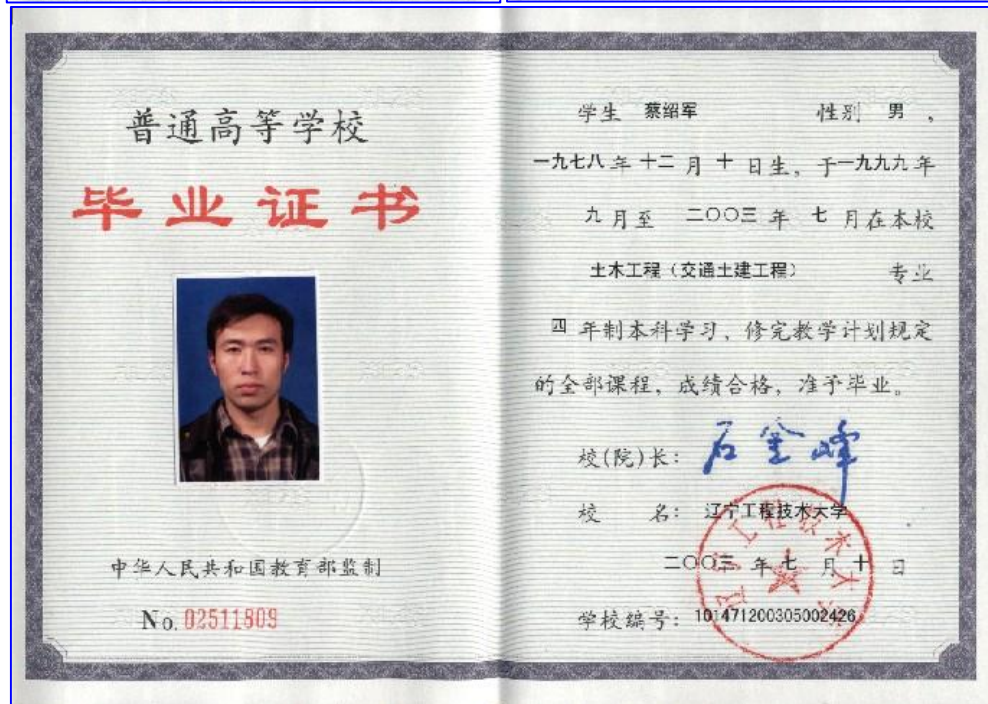 普通高等学校
毕业证书
中华人民共和国教育部监制
No. 02511809
学生 蔡绍军 性别 男 ，
一九七八 年 十二 月 十 日生，于一九九九 年
九 月至 二〇〇三 年 七 月在本校
土木工程（交通土建工程） 专业
四 年制本科学习、修完教学计划规定
的全部课程，成绩合格，准予毕业。
校(院)长： 石金峰
校 名： 辽宁工程技术大学
二〇〇三 年 七 月 十 日
学校编号： 101471200305002426
辽宁工程技术大学